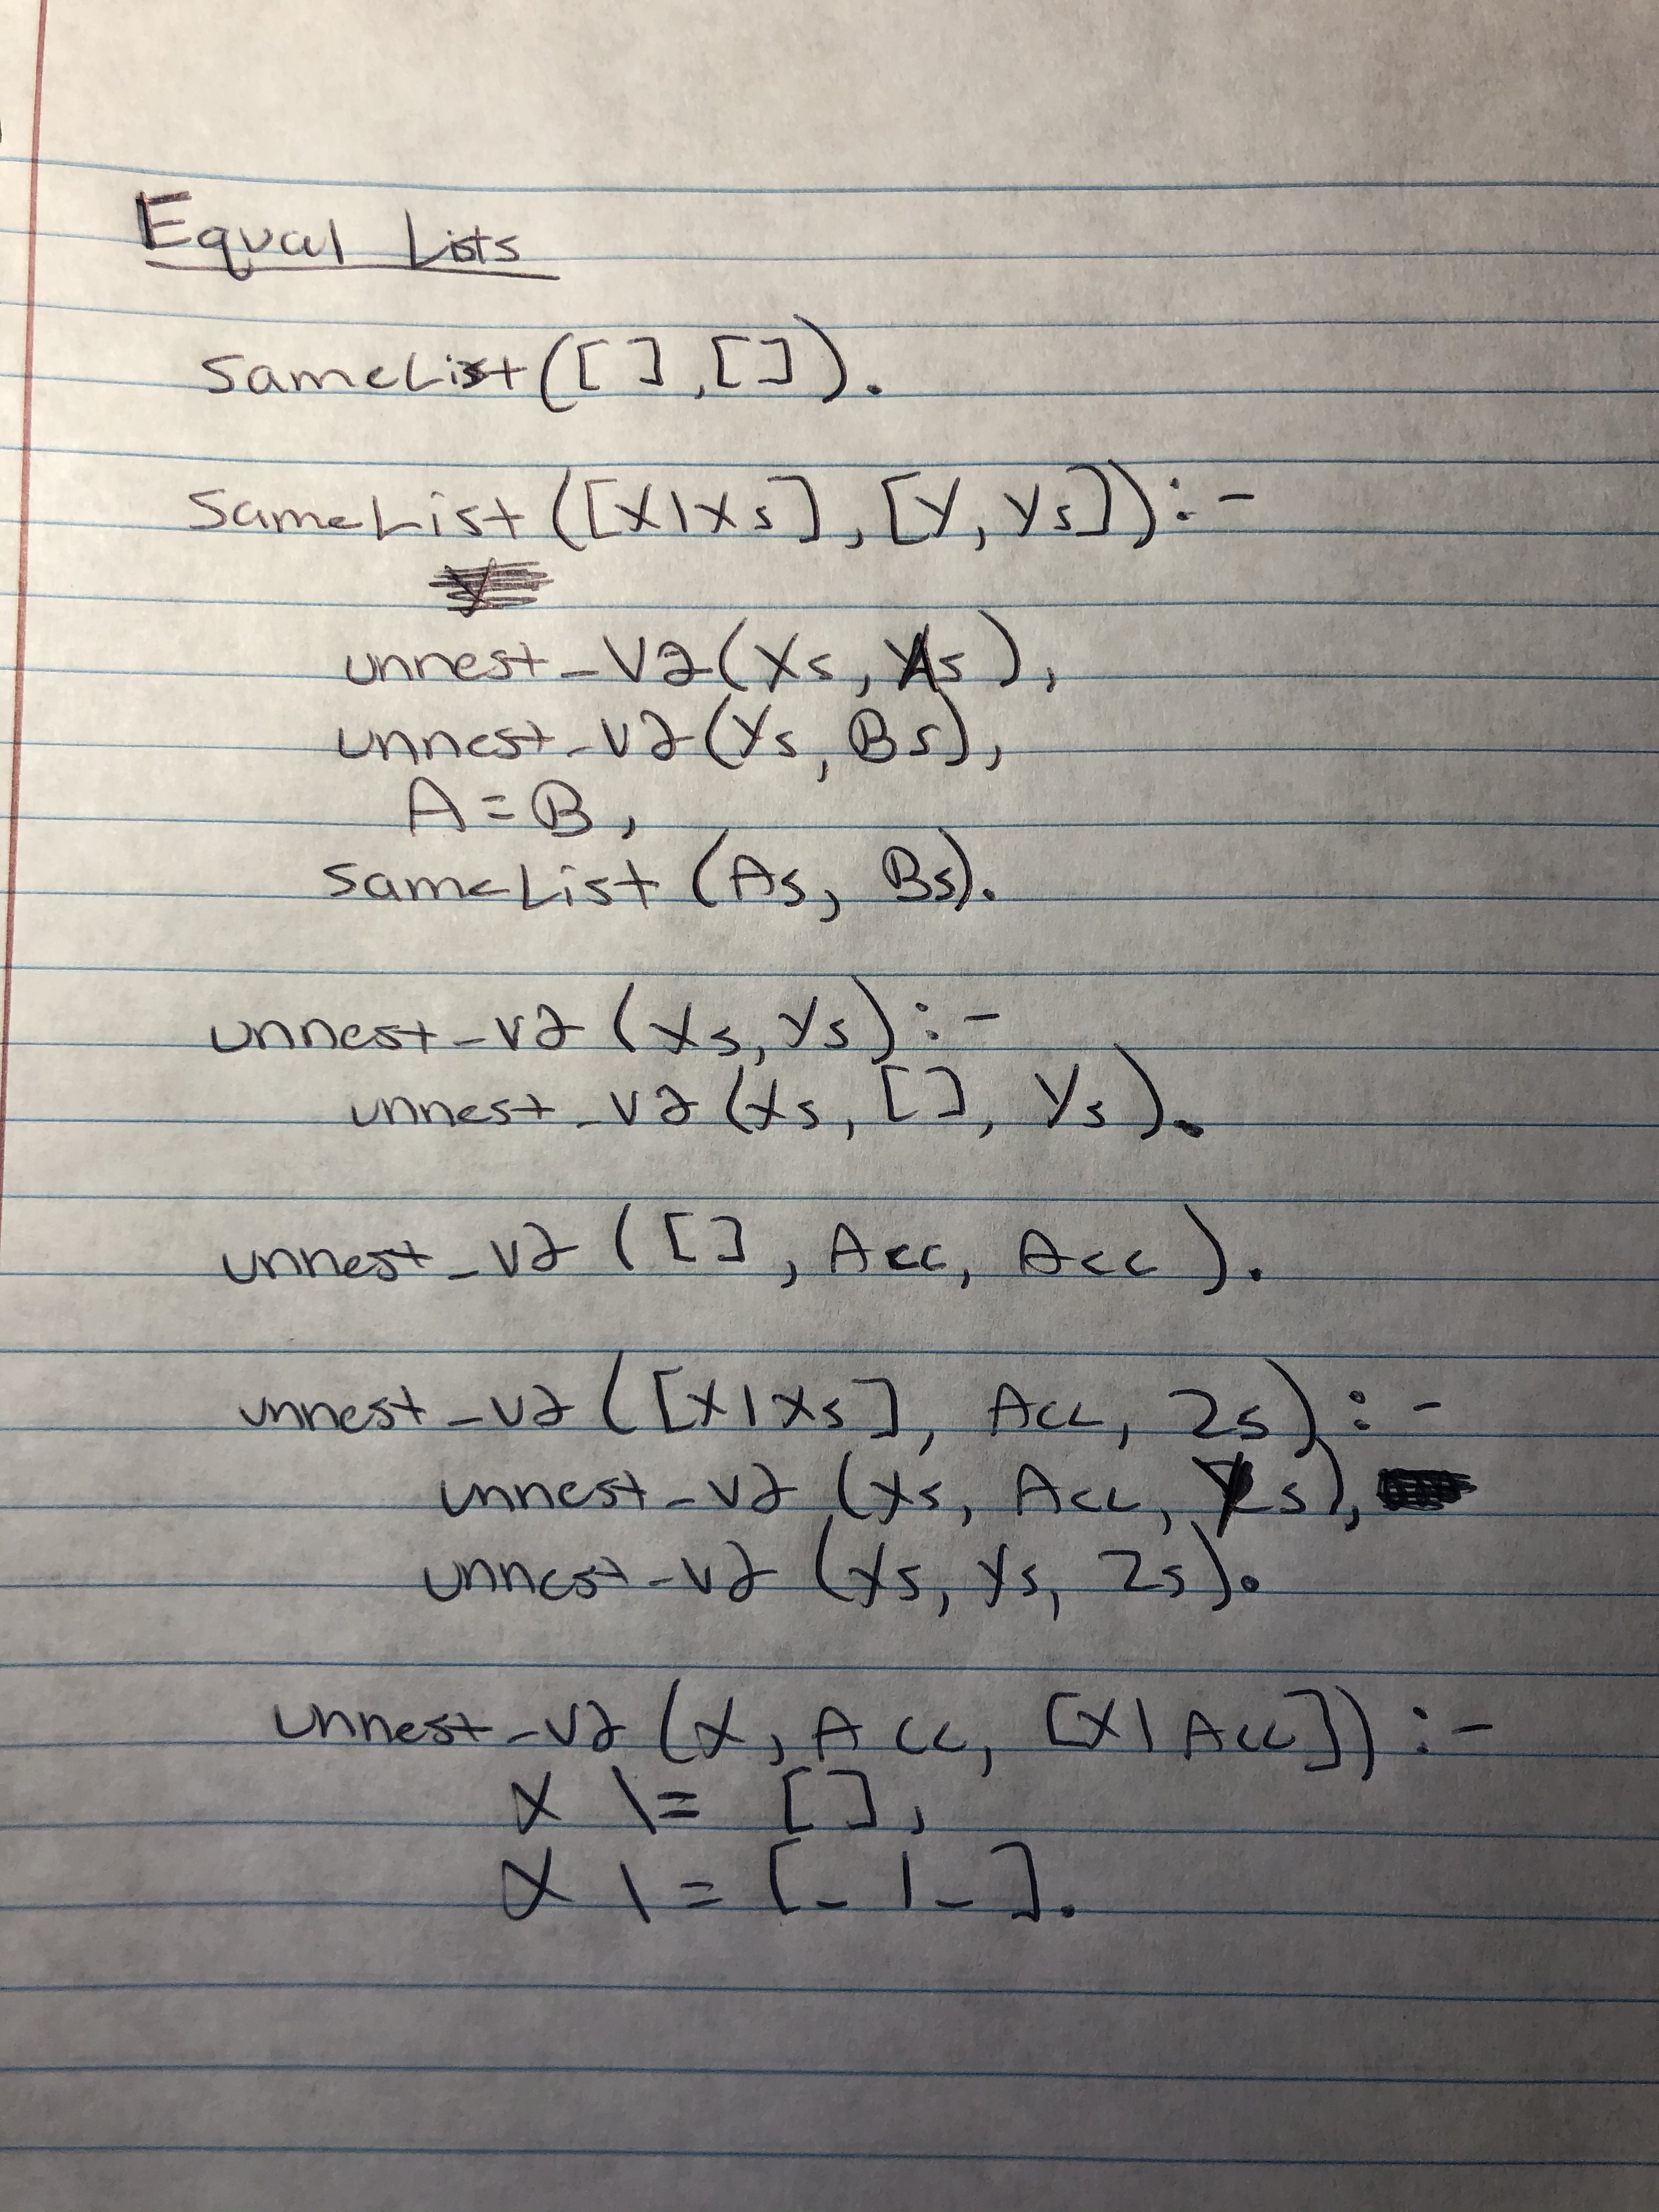 Equal Lists
sameList([ ],[ ]).
sameList([X|Xs],[Y,Ys]):-
unnest_v2(Xs, As),
unnest_v2(Ys, Bs),
A=B,
sameList (As, Bs).
unnest_v2 (Xs, Ys):-
unnest_v2 (Xs, [ ], Ys).
unnest_v2 ([ ], Acc, Acc).
unnest_v2 ([X|Xs], Acc, Zs):-
unnest_v2 (Xs, Acc, Ys),
unnest_v2 (Xs, Ys, Zs).
unnest_v2 (X, Acc, [X|Acc]):-
X \= [ ],
X \= [_|_].